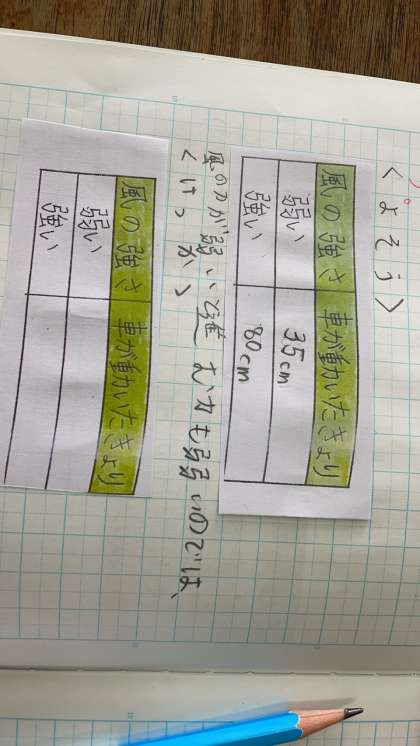 <よそう>
風の強さ 車が動いたきょり
弱い 35cm
強い 80cm
風の力が弱いと進む力も弱いのでは、
<けっか>
風の強さ 車が動いたきょり
弱い
強い